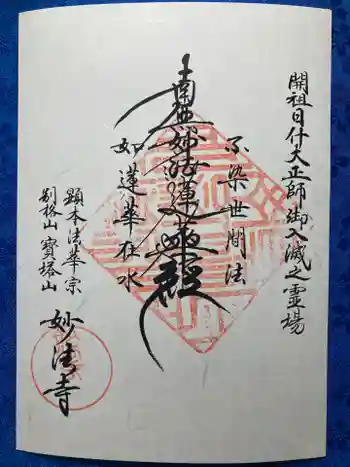 開祖日什大正師御入滅之霊場
不染世間法
南無妙法蓮華経
如蓮華在水
顕本法華宗
別格山寳塔山
妙法寺